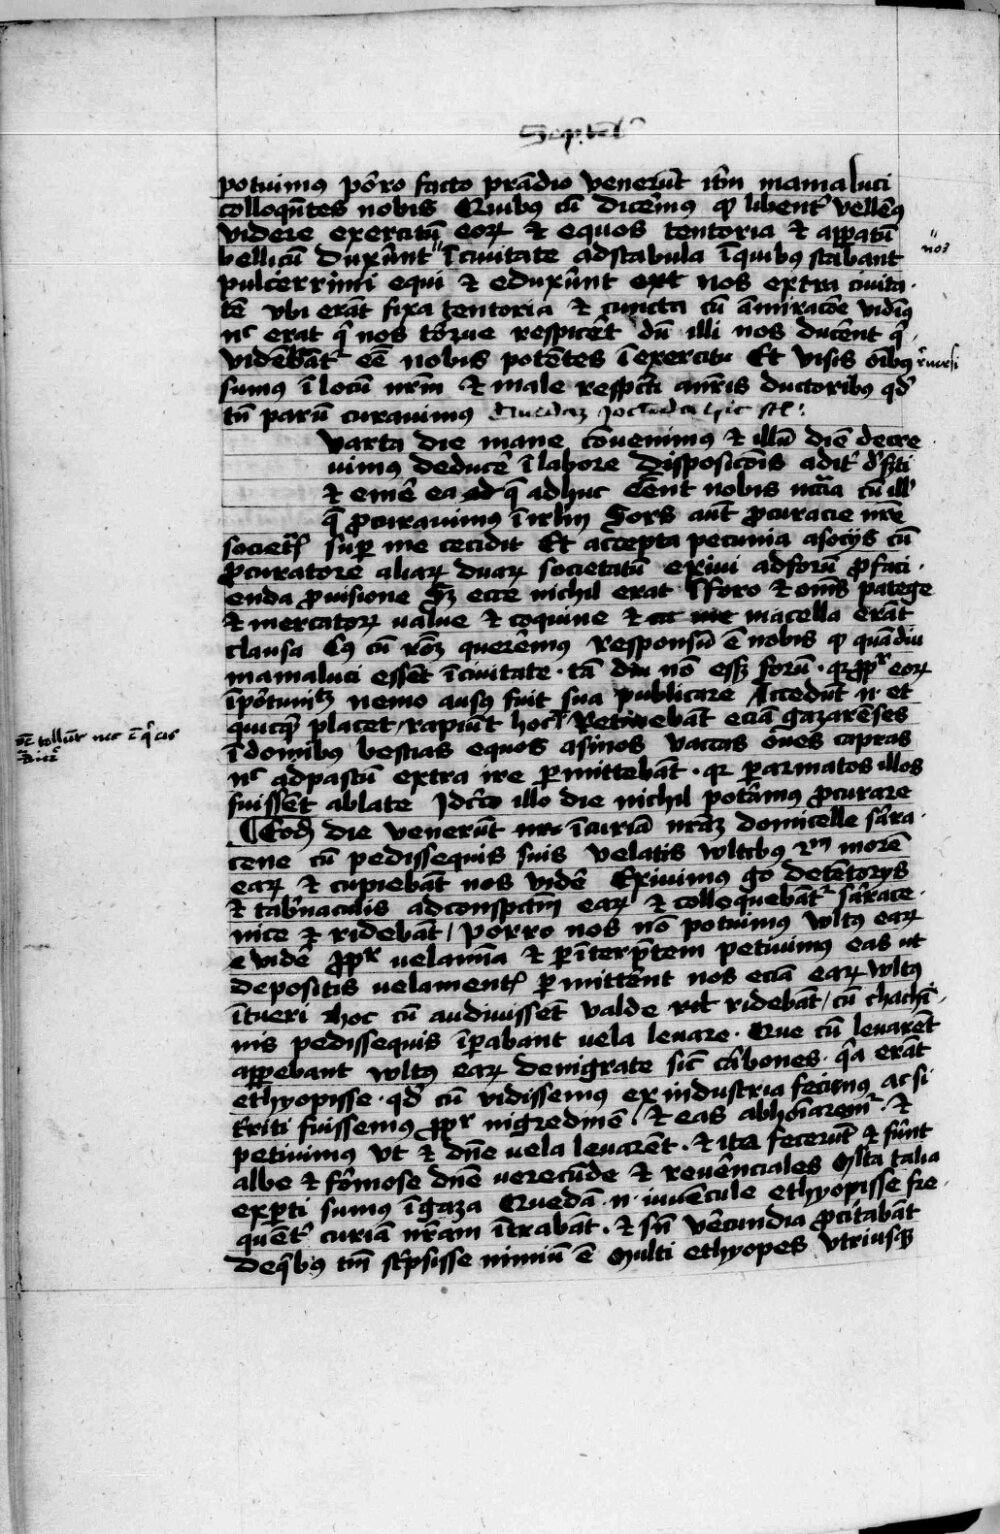 Septē
potuimus pōro facto prādio venerūt itm̄ mamaluci
colloqn̄tes nobis Quibus cū dicem̄us qꝫ libent' vellēꝰ
videre exercitū eoꝝ et equos tentoria et apꝑatū
bellicū Duxūnt " ī ciuitate ad stabula ī quibus stabant
nos
pulcerrimi equi et eduxūnt nos extra ciuita
tē vbi erāt fixa tentoria et cuncta cū āmiracōe vidīꝰ
nc̄ erat qͥ nos tōrue respicēt dū illi nos ducēnt qͥ
videbāt eē nobis potētes ī exercitu Et visis oībꝰ reuersi
sumus ī locū nr̄m et male respecti anr̄is ductoribus qd̄
tn̄ parū curauimus
varta die mane cōuenimus et illū diē decre
uimus deducē ī labore Disposicōis
et emē ea q̄ adhuc Eēnt nobis ncc̄ia cū ill'
q̄ ꝓcurauimus ī irlm̄ Sors aūt ꝓcuracie nr̄e
societ' suꝑ me cecidit Et accepta pecunia a socijs cū
ꝓcuratore aliaꝝ duaꝝ societatū exiui ad forū ꝓ faci
enda ꝓuisione Sꝫ ecce nichil erat ī foro et om̄s
et mercatoꝝ value et coquine et macella erāt
clausa Cꝰ cū rōꝫ querēmus responsū ē nobis qꝫ quādiu
mamaluci essēt ī ciuitate tā diu nō essꝫ forū qꝛ ꝓpt' eoꝝ
īpōtunitꝫ nemo ausꝰ fuit sua publicare Accedūt n̄ et
quicqͥd placet rapiūt hoc Retinebāt eciā gazarēses
ī domibus bestias equos asinos vaccas oues capras
nc̄ ad pastū extra ire ꝑmittebāt qꝛ ꝑ armatos illos
fuissēt ablate Idc̄o illo die nichil potūmus ꝓcurare
¶Eodē die venerūt ī curiā nr̄aꝫ domicelle sāra
cene cū pedissequis suis velatis wltibꝰ morē
eaꝝ et cupiebāt nos vidē Exiuimus gͦ de tētorijs
et tabn̄aculis ad conspc̄m̄ eaꝝ et colloquebāt' sārace
nice et ridebāt / porro nos nō potuimus wltꝰ eaꝝ
vidē ꝓpt' velamīa et ꝑ īterpr̄tem petiuimus eas ut
depositis velament' ꝑmittēnt nos eciā eaꝝ wltꝰ
ītueri hoc cū audiuissēt valde ridebāt / cū chachī
nis pedissequis īꝑabant vela leuare Que cū leuarēt
apꝑebant wltꝰ eaꝝ denigrate sic̄ cārbones qͥa erāt
ethyopisse qd̄ cū vidissemus ex industria fecimus ac si
tr̄riti fuissemus ꝓpt' nigredinē et eas abhoīarem' et
petiuimus vt et dn̄e vela leuarēt et ita fecerūt et fūnt
albe et fōrmose dn̄e verecūde et reuēnciales Mlta talia
exꝑti sumus ī gaza Quedā n̄ iuuēcule ethyopisse fre
quēt' curiā nr̄am ītrabāt et sn̄ vēcundia
de qͥbus tm̄ sc̄psisse nimiū ē Multi ethyopes vtriusqꝫ